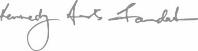 Kennedy Arts Foundation